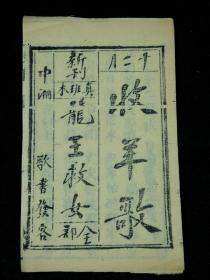 十二月
牧羊歌
新刊真班本龍王救女全部
中湘 歌書發客